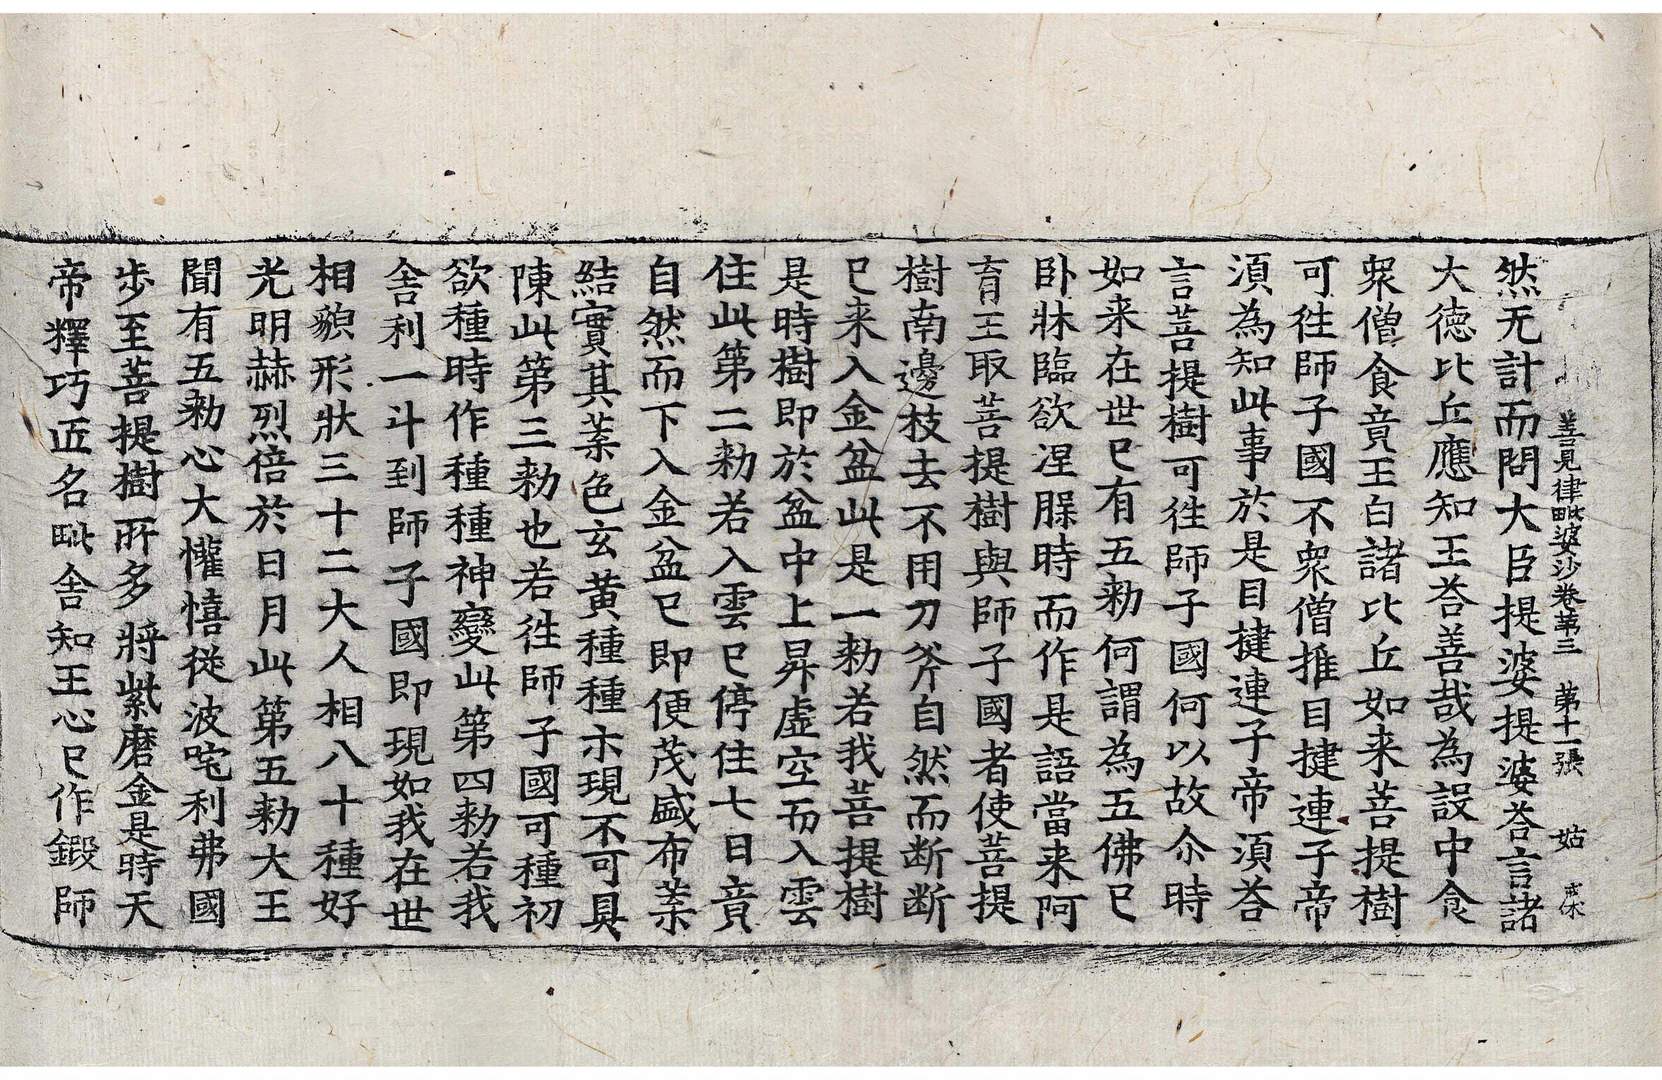 善見律毗婆沙卷第三 第十一張 姑 戒休
然无計而問大臣提婆提婆荅言諸
大德比丘應知王荅善哉為設中食
衆僧食竟王白諸比丘如来菩提樹
可徃師子國不衆僧推目揵連子帝
須為知此事於是目揵連子帝須荅
言菩提樹可徃師子國何以故尒時
如来在世已有五勑何謂為五佛已
卧牀臨欲涅槃時而作是語當来阿
育王取菩提樹與師子國者使菩提
樹南邊枝去不用刀斧自然而断断
已来入金盆此是一勑若我菩提樹
是時樹即於盆中上昇虛空而入雲
住此第二勑若入雲已停住七日竟
自然而下入金盆已即便茂盛布葉
結實其葉色玄黄種種示現不可具
陳此第三勑也若徃師子國可種初
欲種時作種種神變此第四勑若我
舍利一斗到師子國即現如我在世
相貌形狀三十二大人相八十種好
光明赫烈倍於日月此第五勑大王
聞有五勑心大懽憘従波咤利弗國
歩至菩提樹所多將紫磨金是時天
帝釋巧匠名毗舍知王心已作鍛師